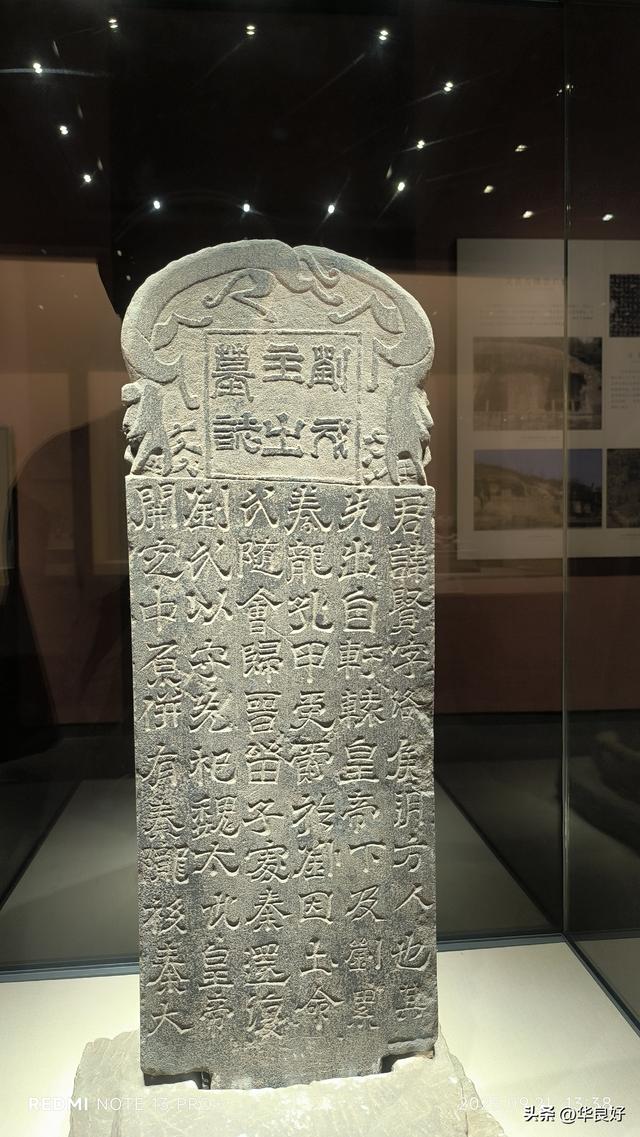 劉戍
主之
墓誌
君諱賢字洛侯朔方人也其
先出自軒轅皇帝下及劉累
豢龍孔甲受爵於劉因土命
氏隨會歸晉留子處秦還復
劉氏以守先祀魏太武皇帝
開定中原併有秦隴移秦大
REDMI NOTE 13 PRO
13:38
头条 @华良好